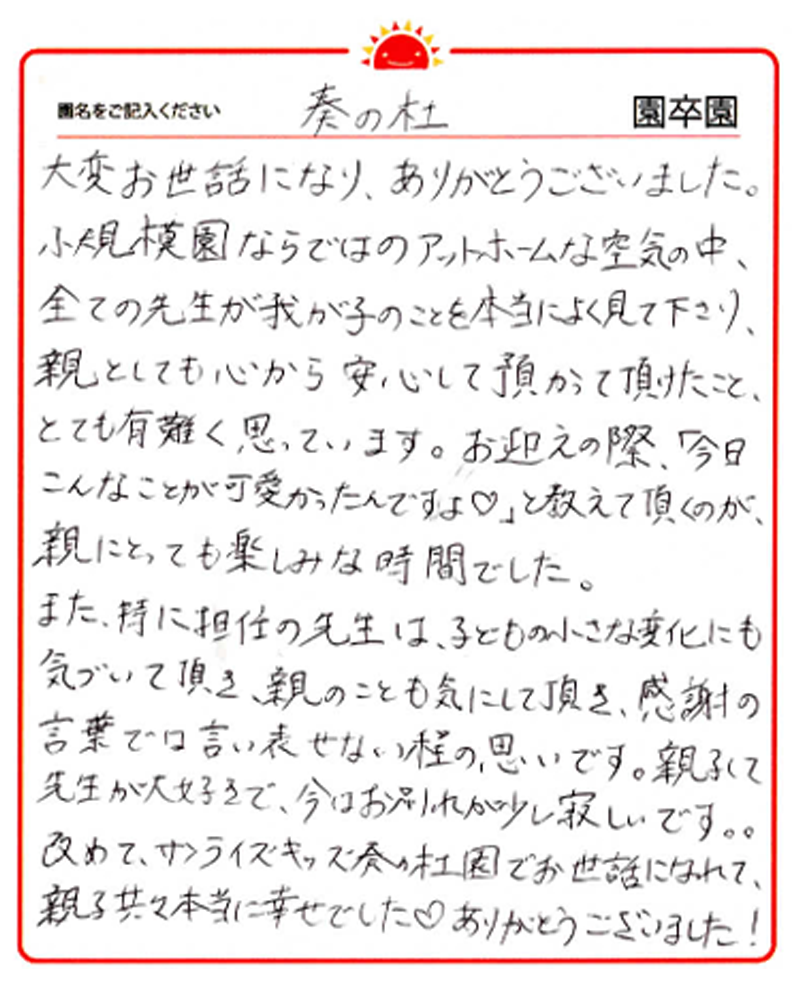 園名をご記入ください 奏の杜 園卒園
大変お世話になり、ありがとうございました。
小規模園ならではのアットホームな空気の中、
全ての先生が我が子のことを本当によく見て下さり、
親としても心から安心して預かって頂けたこと、
とても有難く思っています。お迎えの際、「今日
こんなことが可愛かったんですよ♡」と教えて頂くのが、
親にとっても楽しみな時間でした。
また、特に担任の先生は、子どもの小さな変化にも
気づいて頂き、親のことも気にして頂き、感謝の
言葉では言い表せない程の思いです。親子して
先生が大好きで、今はお別れが少し寂しいです。。
改めて、サンライズキッズ奏の杜園でお世話になれて、
親子共々本当に幸せでした♡ありがとうございました!